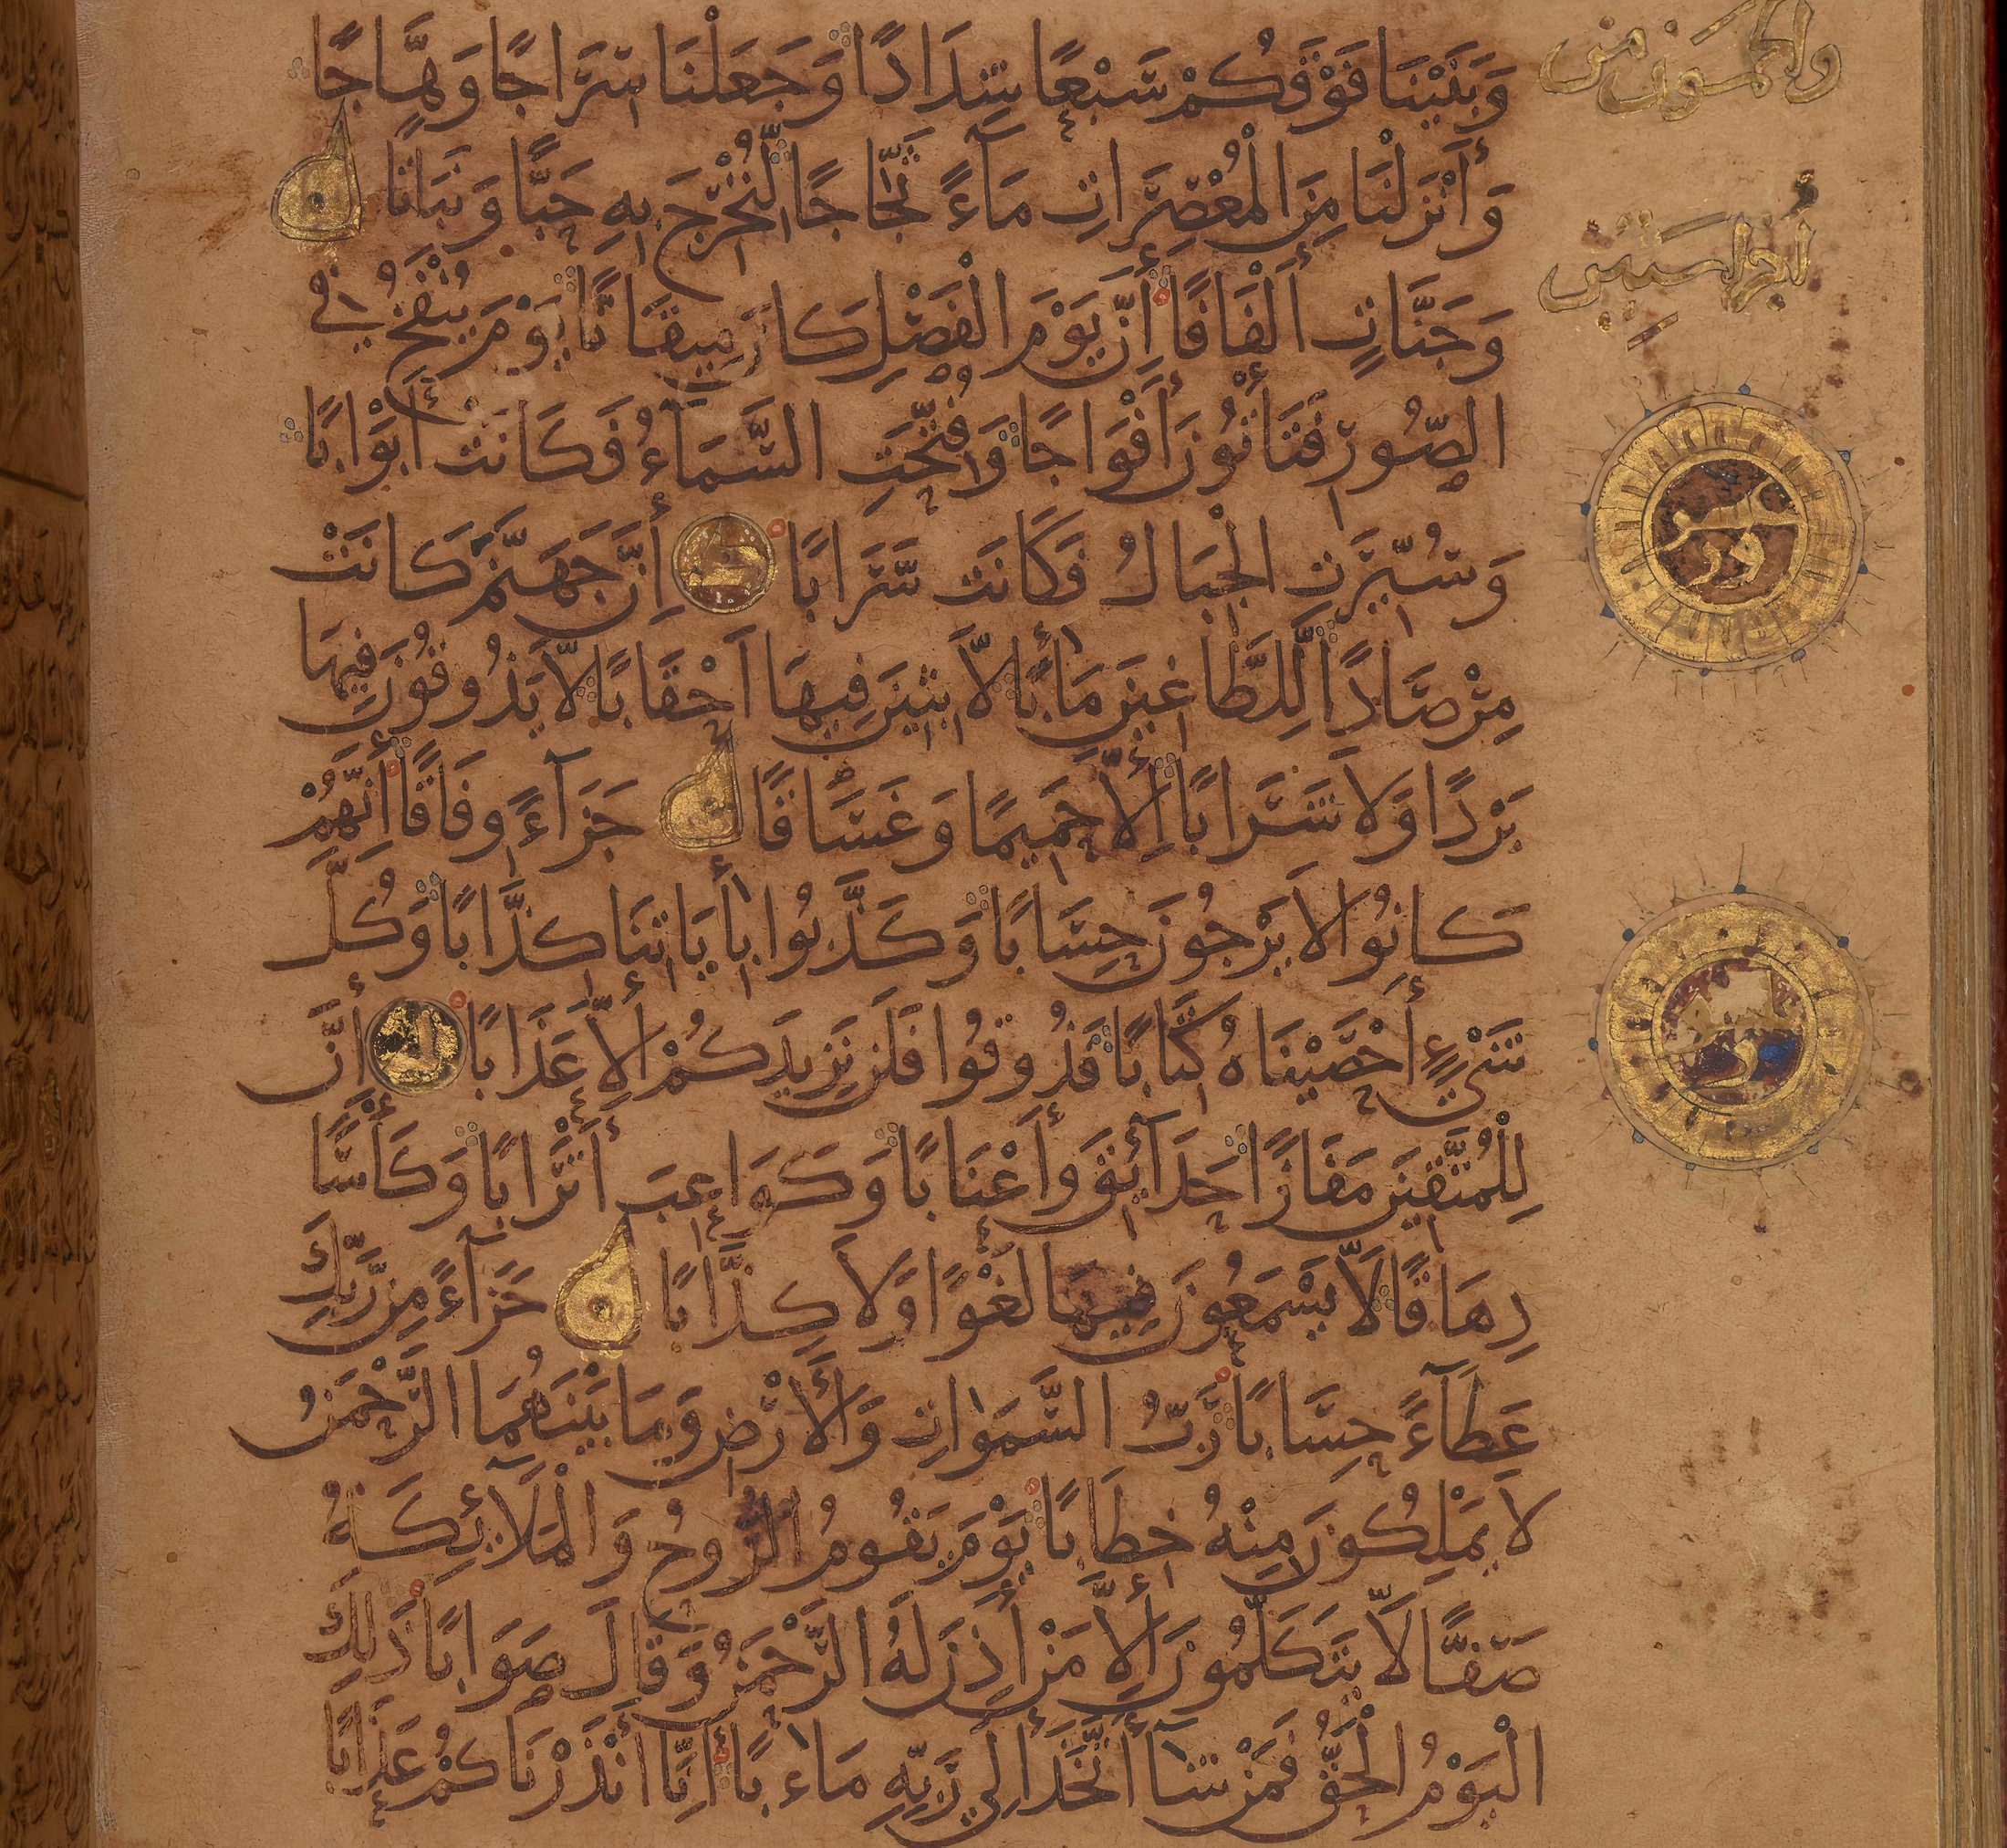 وَبَنَيْنَا فَوْقَكُمْ سَبْعًا شِدَادًا وَجَعَلْنَا سِرَاجًا وَهَّاجًا
وَأَنْزَلْنَا مِنَ الْمُعْصِرَاتِ مَآءً ثَجَّاجًا لِّنُخْرِجَ بِهِ حَبًّا وَنَبَاتًا
وَجَنَّاتٍ أَلْفَافًا إِنَّ يَوْمَ الْفَصْلِ كَانَ مِيقَاتًا يَوْمَ يُنْفَخُ فِي
الصُّورِ فَتَأْتُونَ أَفْوَاجًا وَفُتِّحَتِ السَّمَآءُ فَكَانَتْ أَبْوَابًا
وَسُيِّرَتِ الْجِبَالُ فَكَانَتْ سَرَابًا إِنَّ جَهَنَّمَ كَانَتْ
مِرْصَادًا لِّلطَّاغِينَ مَأٰبًا لَّابِثِينَ فِيهَا أَحْقَابًا لَّا يَذُوقُونَ فِيهَا
بَرْدًا وَلَا شَرَابًا إِلَّا حَمِيمًا وَغَسَّاقًا جَزَآءً وِفَاقًا إِنَّهُمْ
كَانُوا لَا يَرْجُونَ حِسَابًا وَكَذَّبُوا بِأٰيَاتِنَا كِذَّابًا وَكُلَّ
شَيْءٍ أَحْصَيْنَاهُ كِتَابًا فَذُوقُوا فَلَنْ نَزِيدَكُمْ إِلَّا عَذَابًا إِنَّ
لِلْمُتَّقِينَ مَفَازًا حَدَآئِقَ وَأَعْنَابًا وَكَوَاعِبَ أَتْرَابًا وَكَأْسًا
دِهَاقًا لَّا يَسْمَعُونَ فِيهَا لَغْوًا وَلَا كِذَّابًا جَزَآءً مِنْ رَّبِّكَ
عَطَآءً حِسَابًا رَّبُّ السَّمٰوَاتِ وَالْأَرْضِ وَمَا بَيْنَهُمَا الرَّحْمَنُ
لَا يَمْلِكُونَ مِنْهُ خِطَابًا يَوْمَ يَقُومُ الرُّوحُ وَالْمَلَآئِكَةُ
صَفًّا لَّا يَتَكَلَّمُونَ إِلَّا مَنْ أَذِنَ لَهُ الرَّحْمَنُ وَقَالَ صَوَابًا ذَلِكَ
الْيَوْمُ الْحَقُّ فَمَنْ شَآءَ اتَّخَذَ إِلَى رَبِّهِ مَاٰبًا إِنَّا أَنْذَرْنَاكُمْ عَذَابًا
والخمسون من
أجزا ستين
عشر